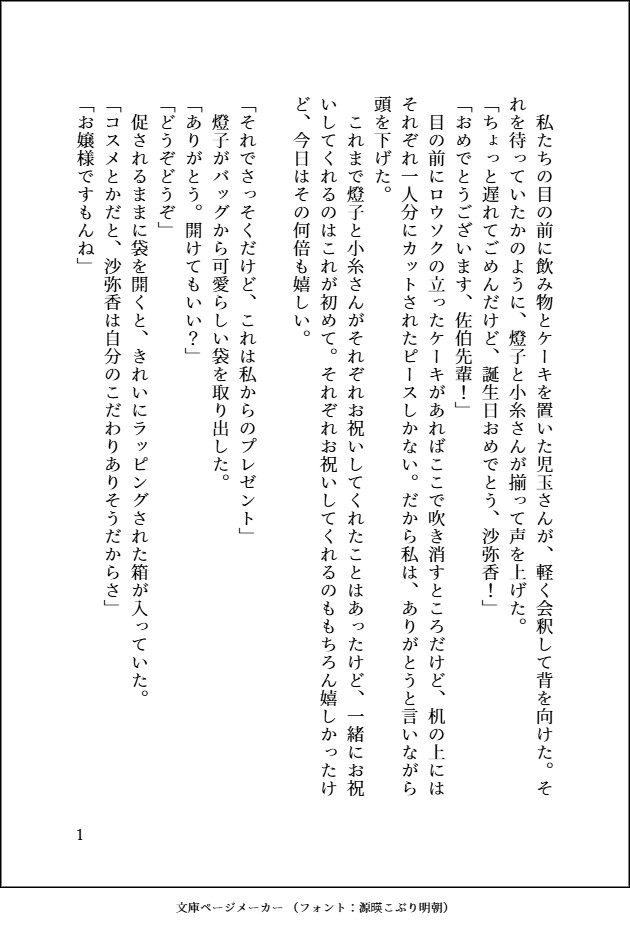 私たちの目の前に飲み物とケーキを置いた児玉さんが、軽く会釈して背を向けた。そ
れを待っていたかのように、燈子と小糸さんが揃って声を上げた。
「ちょっと遅れてごめんだけど、誕生日おめでとう、沙弥香！」
「おめでとうございます、佐伯先輩！」
　目の前にロウソクの立ったケーキがあればここで吹き消すところだけど、机の上には
それぞれ一人分にカットされたピースしかない。だから私は、ありがとうと言いながら
頭を下げた。
　これまで燈子と小糸さんがそれぞれお祝いしてくれたことはあったけど、一緒にお祝
いしてくれるのはこれが初めて。それぞれお祝いしてくれるのももちろん嬉しかったけ
ど、今日はその何倍も嬉しい。
「それでさっそくだけど、これは私からのプレゼント」
　燈子がバッグから可愛らしい袋を取り出した。
「ありがとう。開けてもいい？」
「どうぞどうぞ」
　促されるままに袋を開くと、きれいにラッピングされた箱が入っていた。
「コスメとかだと、沙弥香は自分のこだわりありそうだからさ」
「お嬢様ですもんね」
1
文庫ページメーカー （フォント：源暎こぶり明朝）